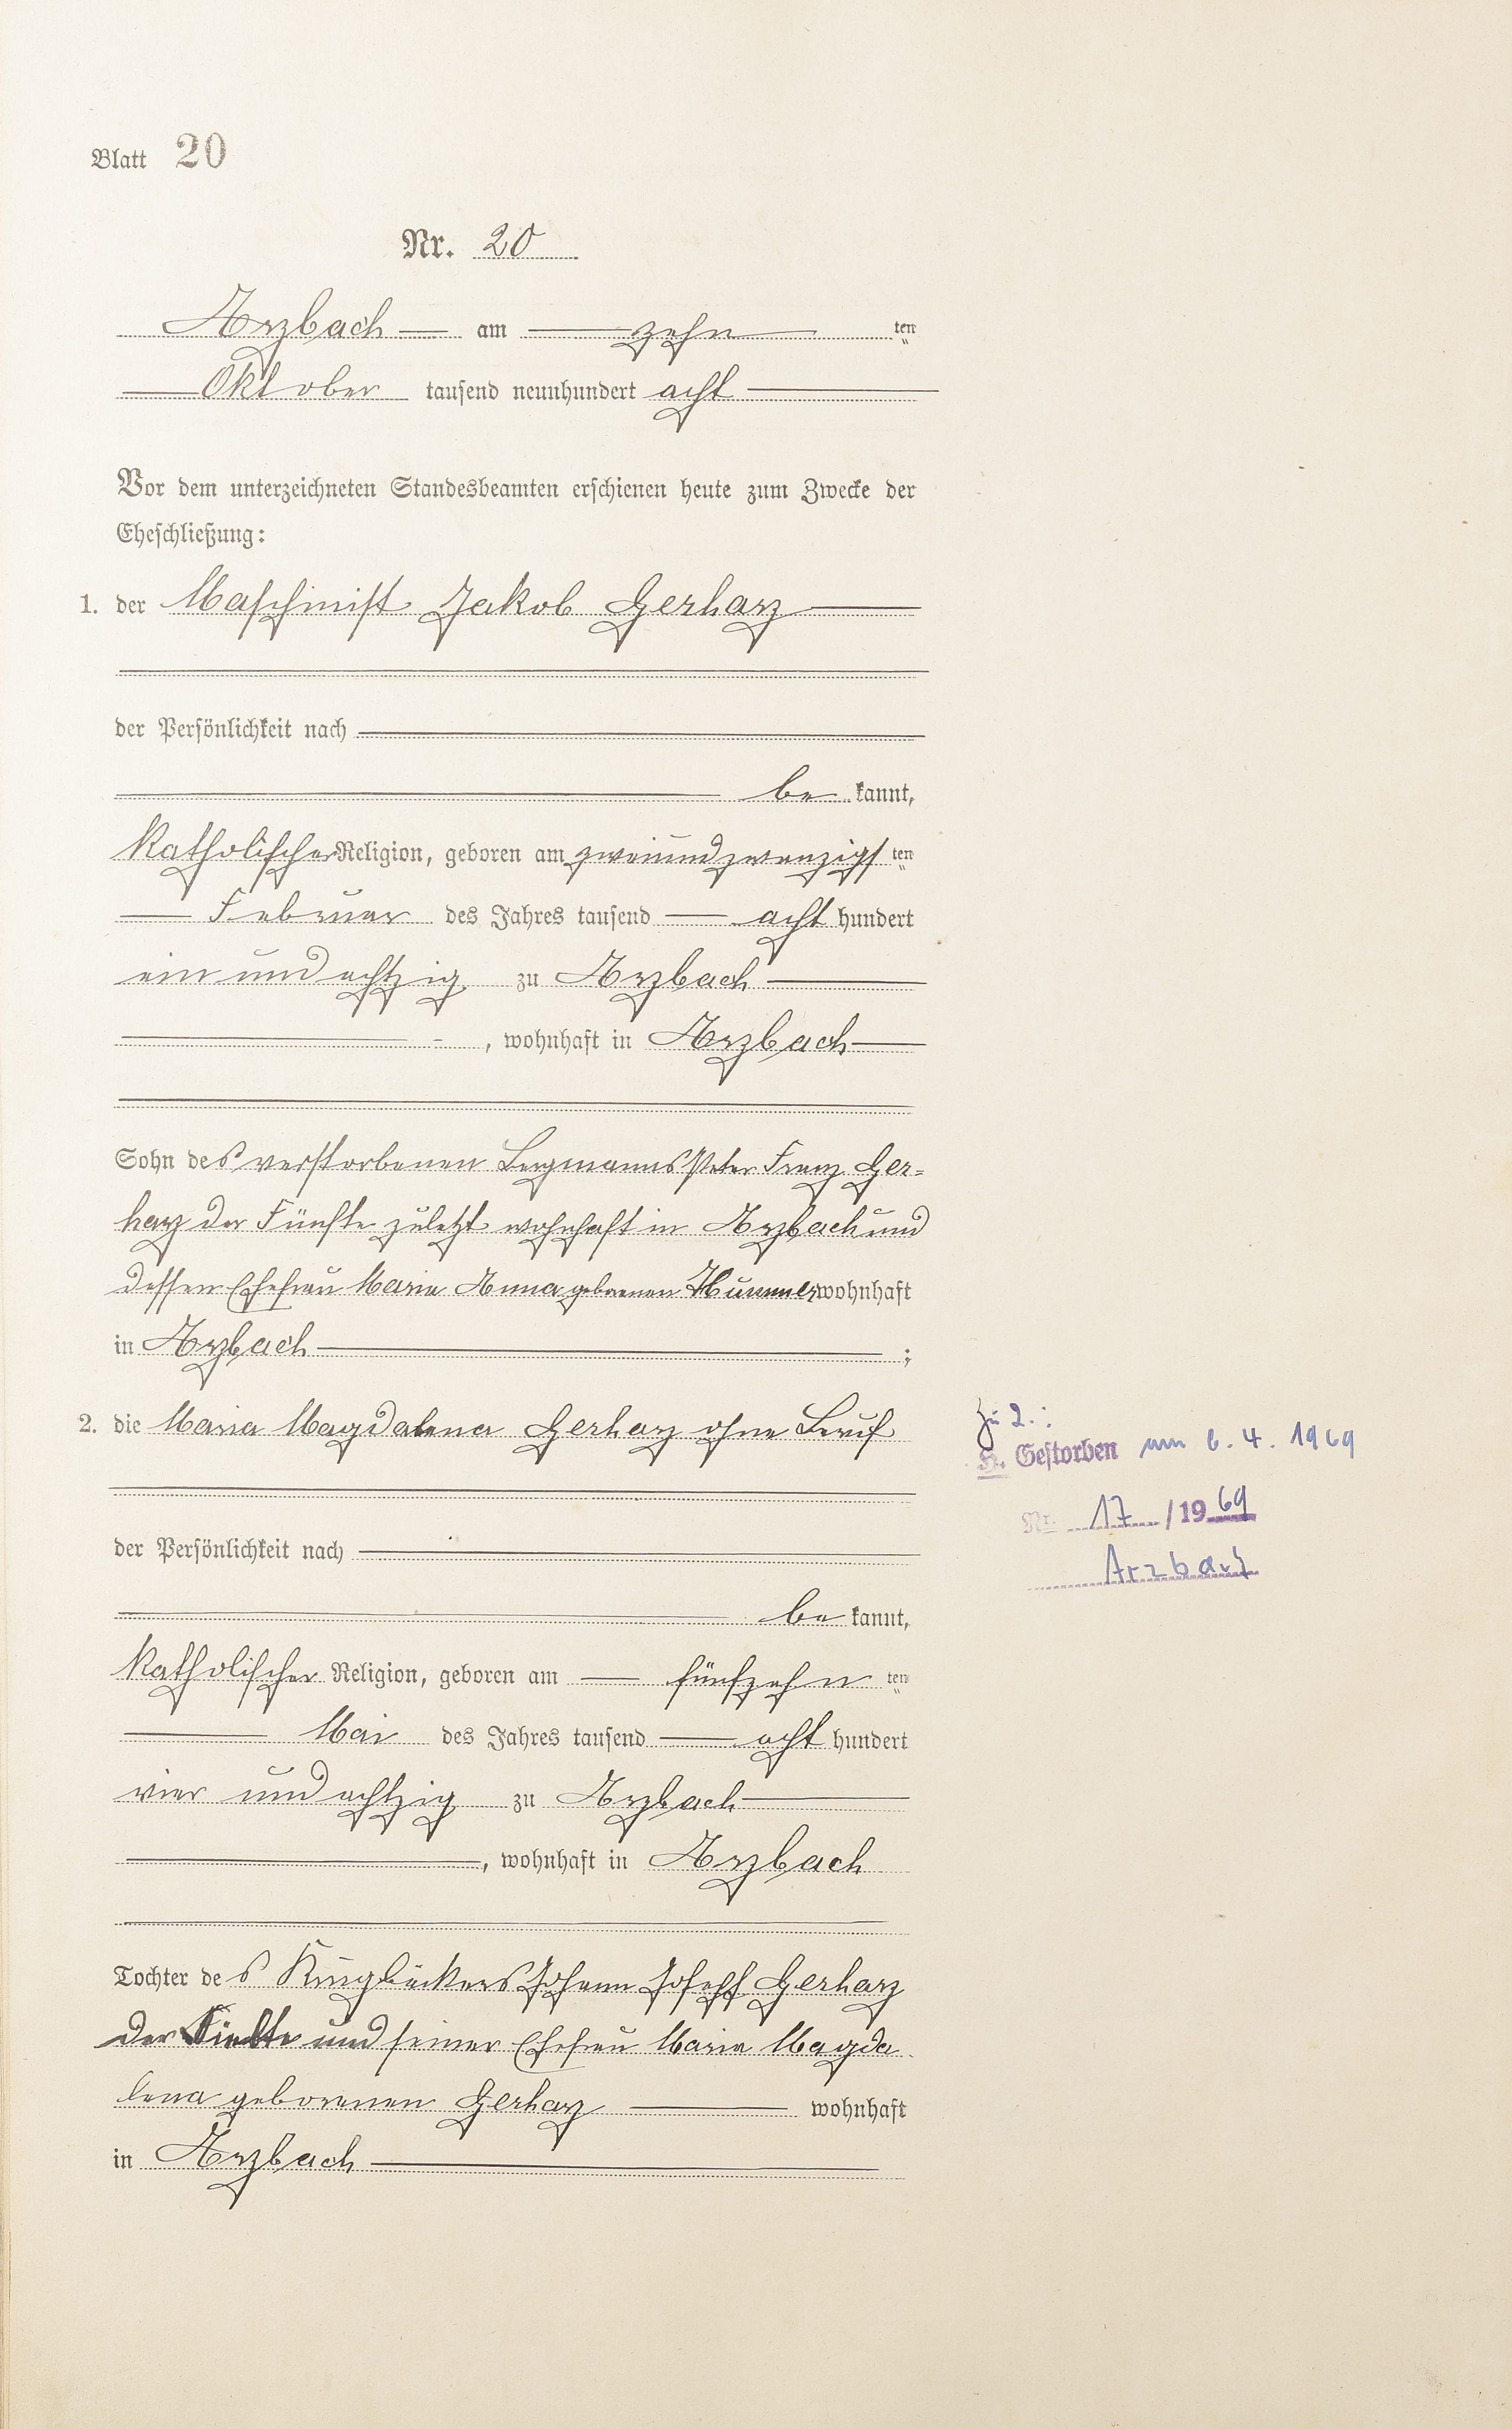 Blatt 20
Nr. 20
Arzbach am zehn ten
Oktober tausend neunhundert acht
Vor dem unterzeichneten Standesbeamten erschienen heute zum Zwecke der
Eheschließung:
1. der Maschinist Jakob Gerharz
der Persönlichkeit nach
be kannt,
Katholischer Religion, geboren am zweiundzwanzigs ten
Februar des Jahres tausend acht hundert
ein und achtzig zu Arzbach
, wohnhaft in Arzbach
Sohn des verstorbenen Bergmanns Peter Franz Ger=
harz der Fünfte zuletzt wohnhaft in Arzbach und
dessen Ehefrau Maria Anna geborenen wohnhaft
in Arzbach ;
2. die Maria Magdalena Gerharz ohne Beruf
zu 2.:
Gestorben am 6. 4. 1969
Nr. 17 / 19 69
Arzbach
der Persönlichkeit nach
be kannt,
Katholischer Religion, geboren am fünfzehn ten
Mai des Jahres tausend acht hundert
vier und achtzig zu Arzbach
, wohnhaft in Arzbach
Tochter de s Krugbäckers Johann Joseph Gerharz
der und seiner Ehefrau Maria Magda
lena geborenen Gerharz wohnhaft
in Arzbach